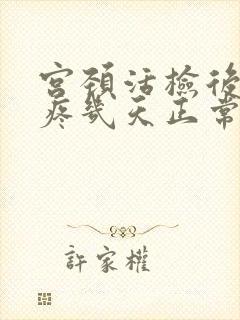 宮頸活檢後
疼幾天正常
許家權